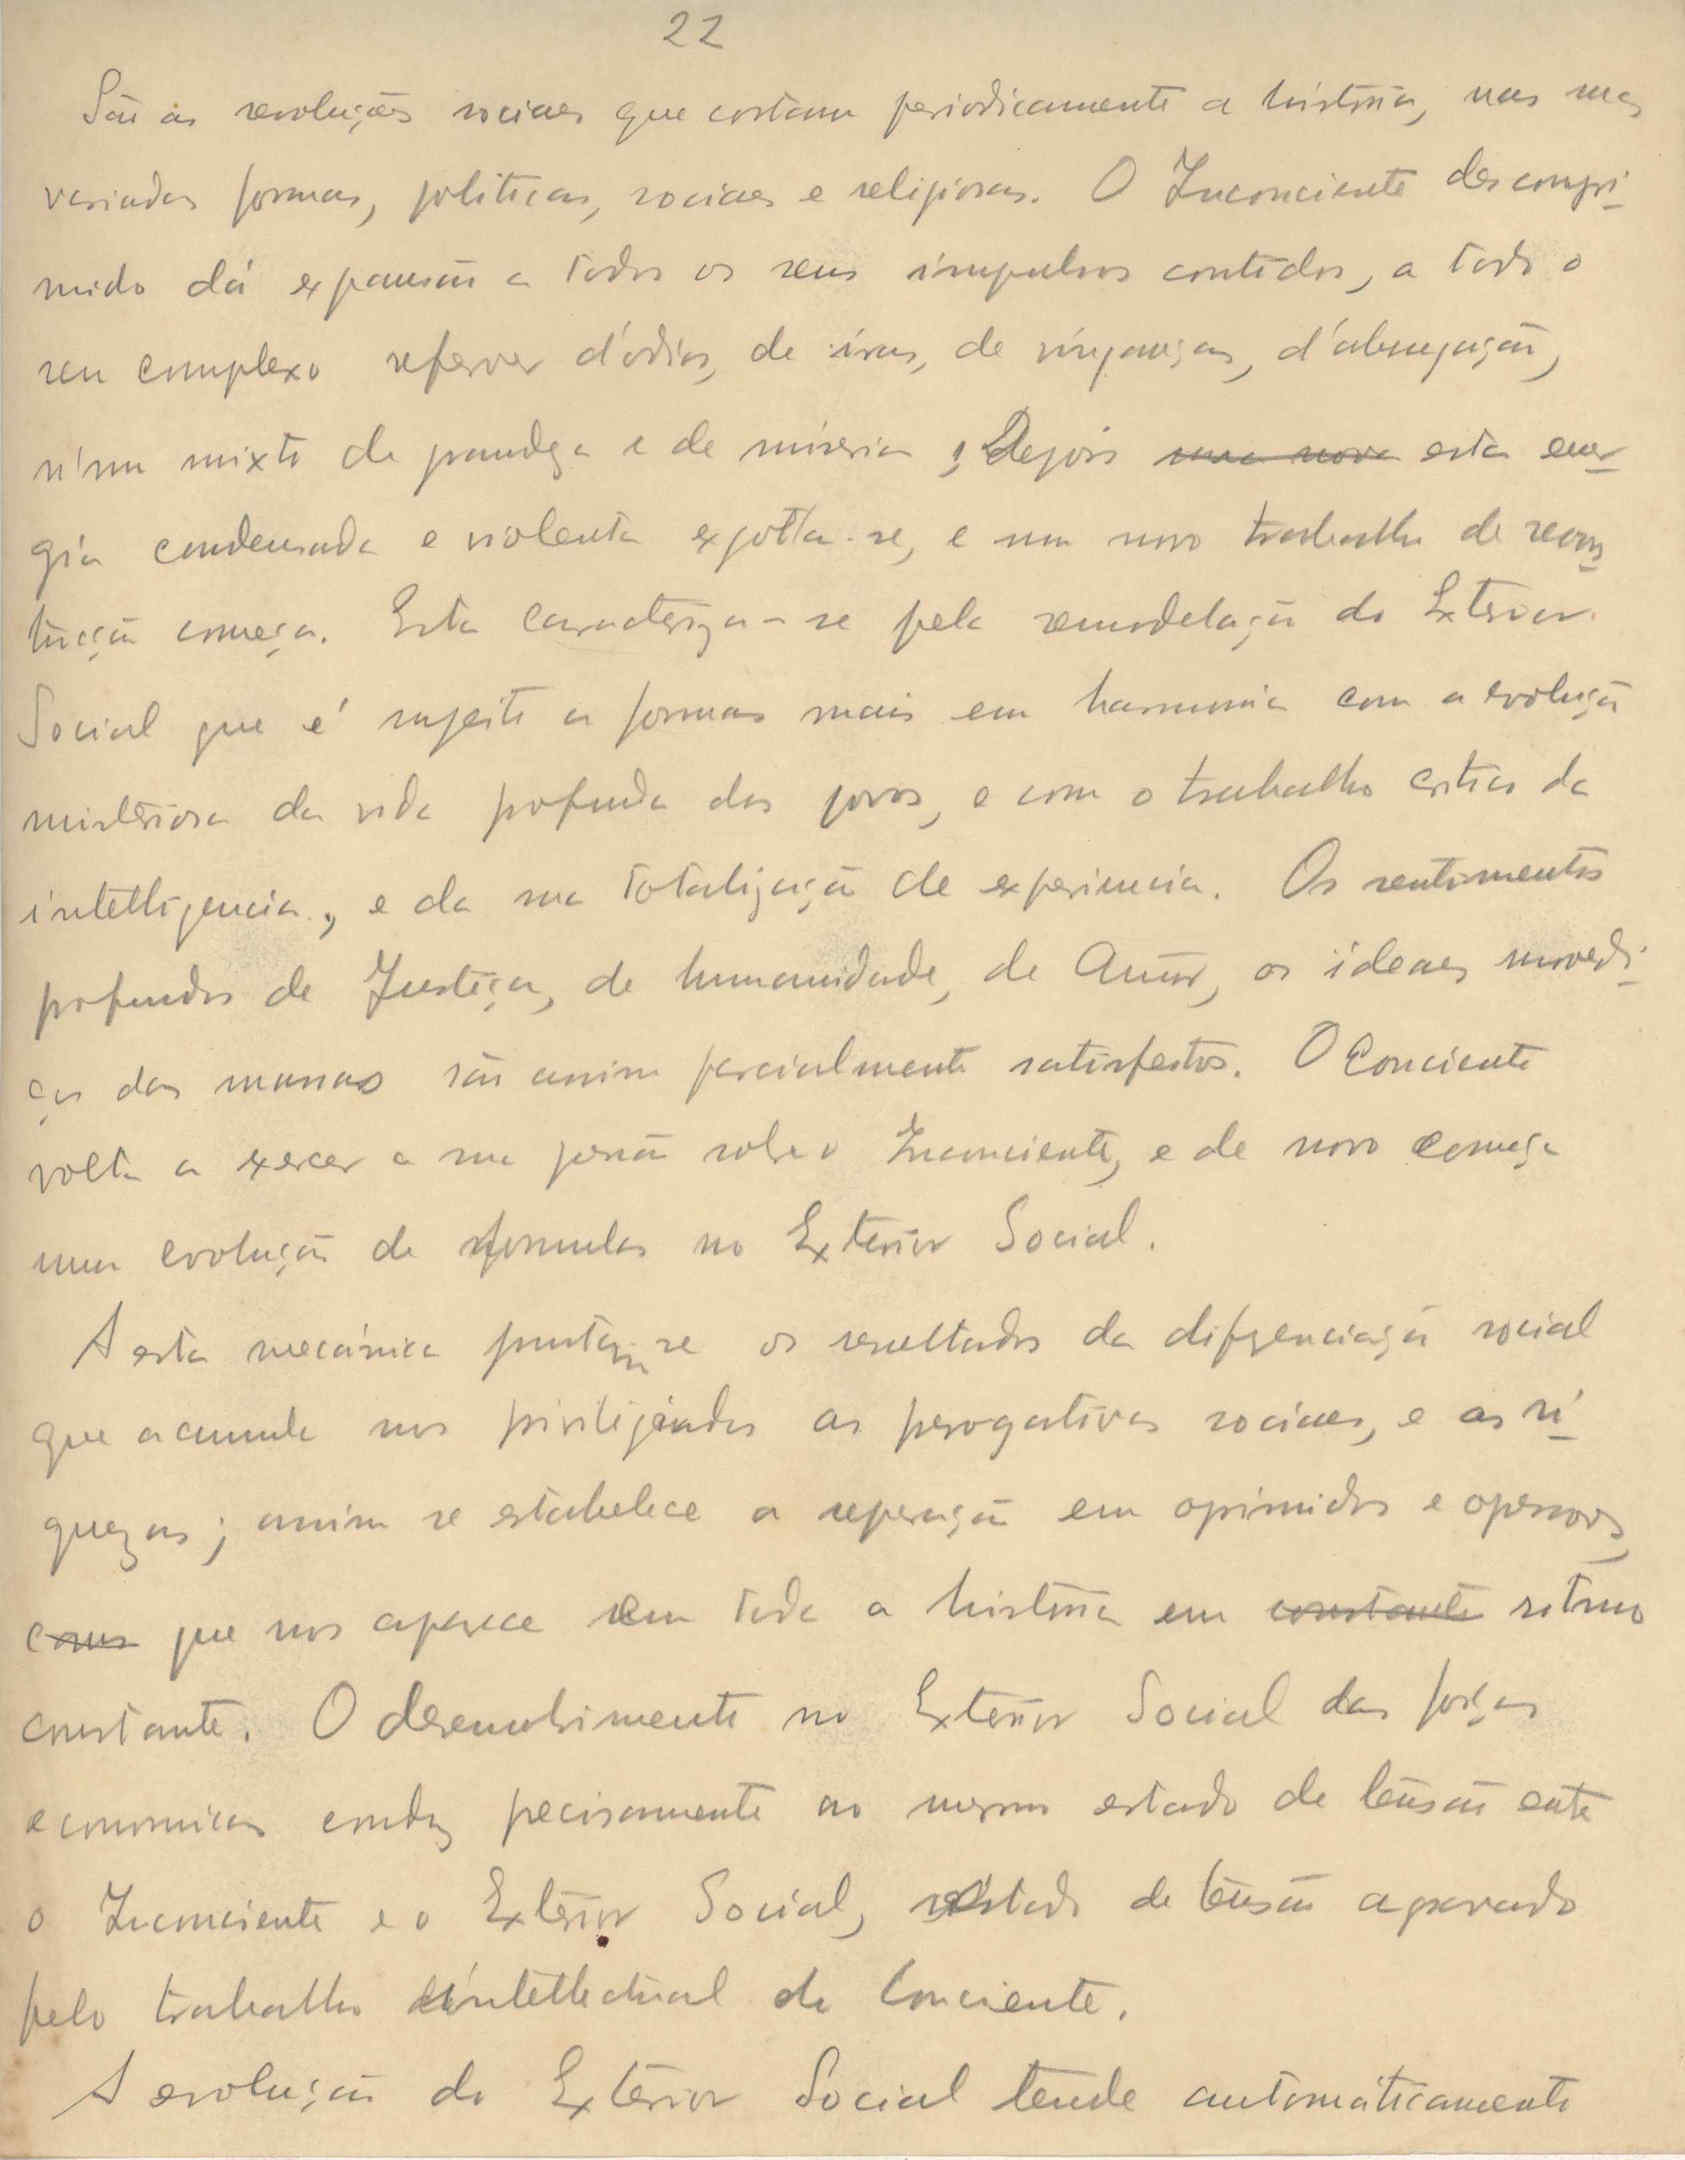 22
São as revoluções sociaes que cortam periodicamente a história, nas mais
variadas formas, politicas, sociaes e religiosas. O Inconciente descompri-
mido dá expansão a todos os seus impulsos contidos, a todo o
seu complexo referver d'ódios, de iras, de vinganças, d'abnegação,
n'um mixto de grandeza e de miseria; Depois uma nova esta ener-
gia condensada e violenta exgotta-se, e um novo trabalho de recons-
trucção começa. Esta caracteriza-se pela remodelação do Exterior
Social que é sujeito a formas mais em harmonia com a evolução
misteriosa da vida profunda dos povos, e com o trabalho critico da
intelligencia, e da sua totalização de experiencia. Os sentimentos
profundos de Justiça, de humanidade, de Amor, os ideaes movedi-
ços das massas são assim parcialmente satisfeitos. O Conciente
volta a exercer a sua pressão sobre o Inconciente, e de novo começa
uma evolução de formulas no Exterior Social.
A esta mecánica juntam se os resultados da diferenciação social
que acumula nos privilijiados as perogativas sociaes, e as ri-
quezas; assim se estabelece a separação em oprimidos e opressores,
como que nos aparece em toda a história em constante ritmo
constante. O desenvolvimento no Exterior Social das forças
economicas conduz precisamente ao mesmo estado de tensão entre
o Inconciente e o Exterior Social, estado de tensão agravado
pelo trabalho intellectual do Conciente.
A evolução do Exterior Social tende automáticamente